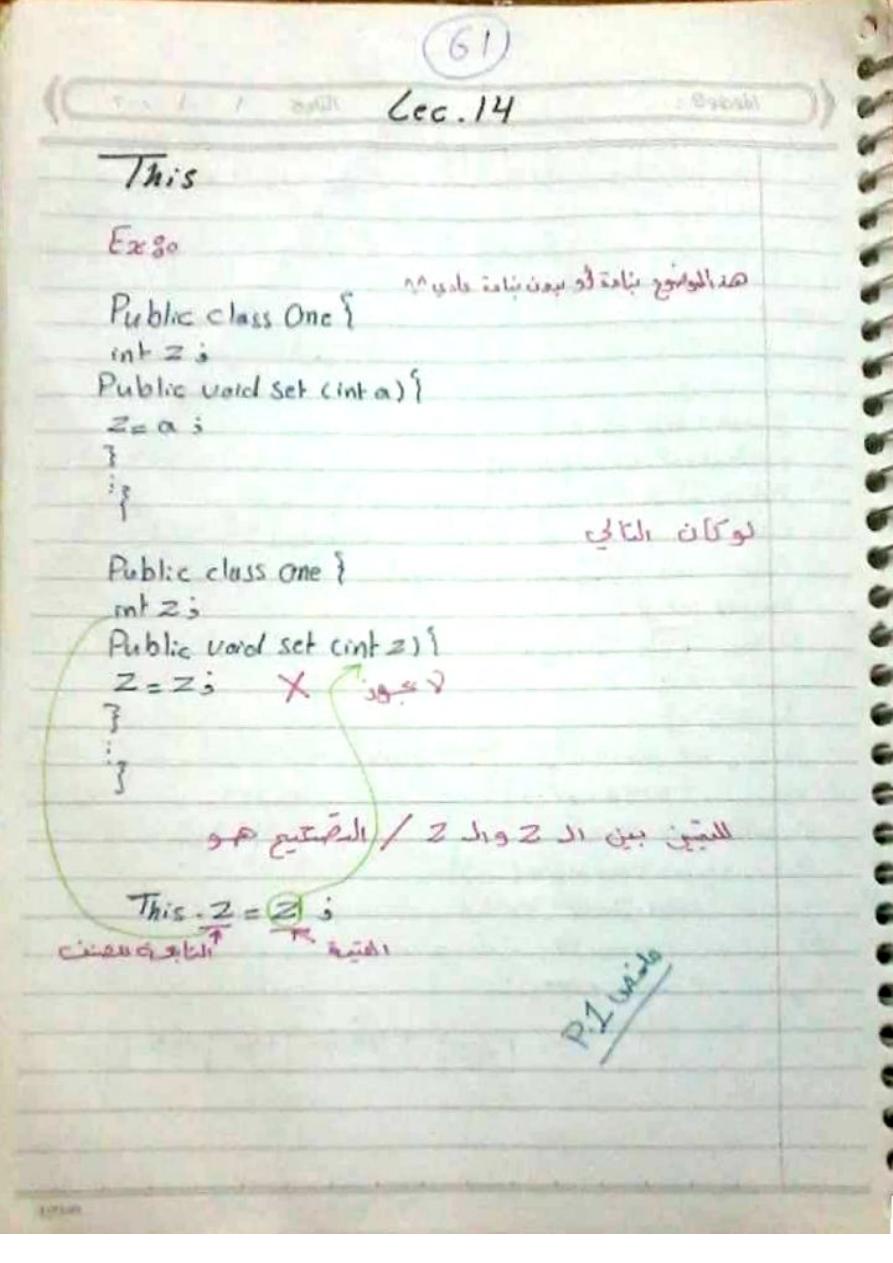 61
Lec. 14
This
Ex:
هذا الموضوع بناءة أو بدون بناءة عادي ^^
Public class One {
int z ;
Public void set (int a) {
z = a ;
}
:
}
لو كان التالي
Public class One {
int z ;
Public void set (int z) {
z = z ; X لا يجوز
}
:
}
للتميز بين الـ z والـ z / التصحيح هو
This . z = z ;
التابعة للصنف القيمة
P.1